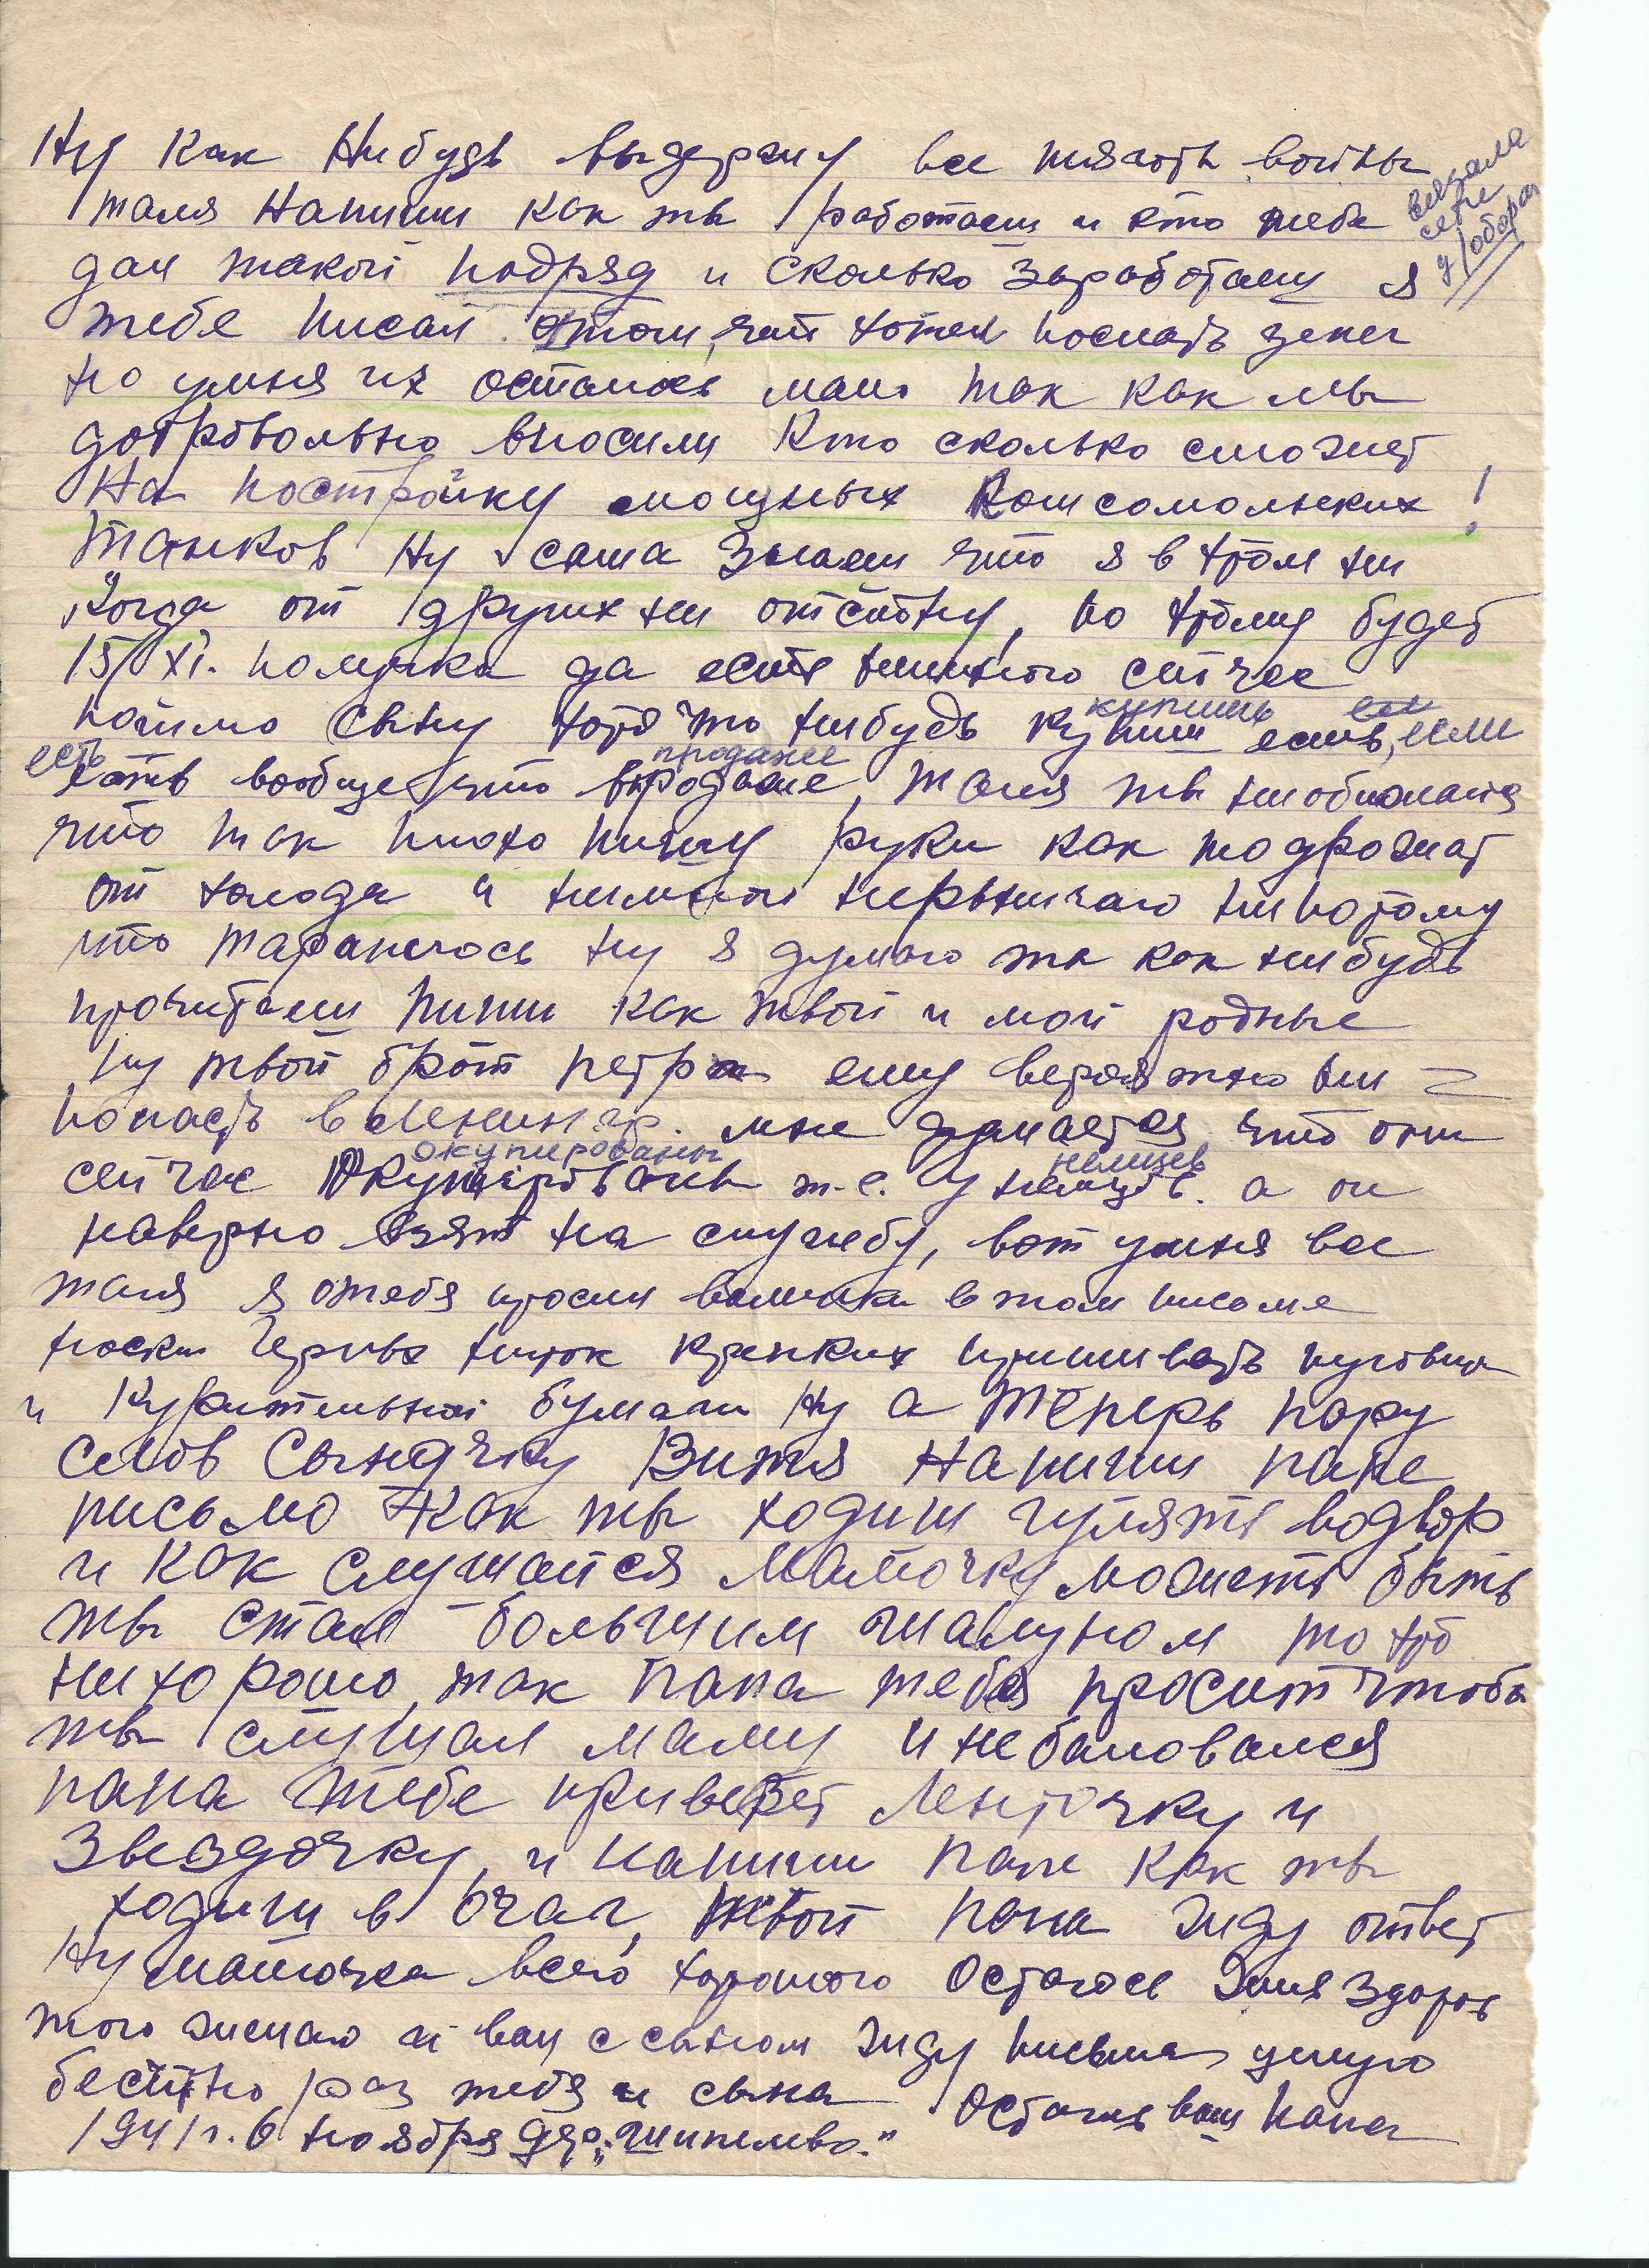 Ну как нибудь выдержу все тягость войны
таля напиши как ты работаеш и кто тебе
вязала
сети
дал такой подряд и сколько заработаеш я
тебе писал отом, что хотел послать денег
но уменя их осталось мало так как мы
добровольно вносили кто сколько сможет
на постройку мощных комсомольских !
танков ну саша знаеш что я в этом ни
когда от других ни отстану, по этому будет
15/XI. получка да есть немного сейчас
купишь
пойми сыну хотя что нибудь купиш есть, если
есть продаже
есть вообще что впродаже, таля ты
что так плохо пишу руки как то дрожат
от холода и немного нервничаю ни потому
что тараплюсь ну я думаю ты как нибудь
прочитаеш пиши как твои и мои родные
ну твой брат петр ему вероятно ни
попасть в Ленингр. мне думается что они
окупированы немцев
сейчас окупированы т.е. у немцев. а он
наверно взят на службу, вот уменя все
таля я отебя просил в том письме
носки черных ниток крепких пришивать пуговицы
и курительной бумаги ну а теперь пару
слов сыночку Витя напиши папе
письмо как ты ходиш гулять водвор
и как слушайся мамочку можеть быть
ты стал большим шалуном то это
нихорошо, так папа тебя просит чтобы
ты слушал маму и небаловался
папа тебе привезет ленточку и
звездочку, и напиши папе как ты
ходиш в очаг, твой папа жду ответ
ну мамочка всего хорошего остаюсь жив здоров
того желаю и вам с сыном жду письма целую
бесчетно раз тебя и сына остаюсь ваш папа
1941 г. 6 ноября дер. „Шипилево."